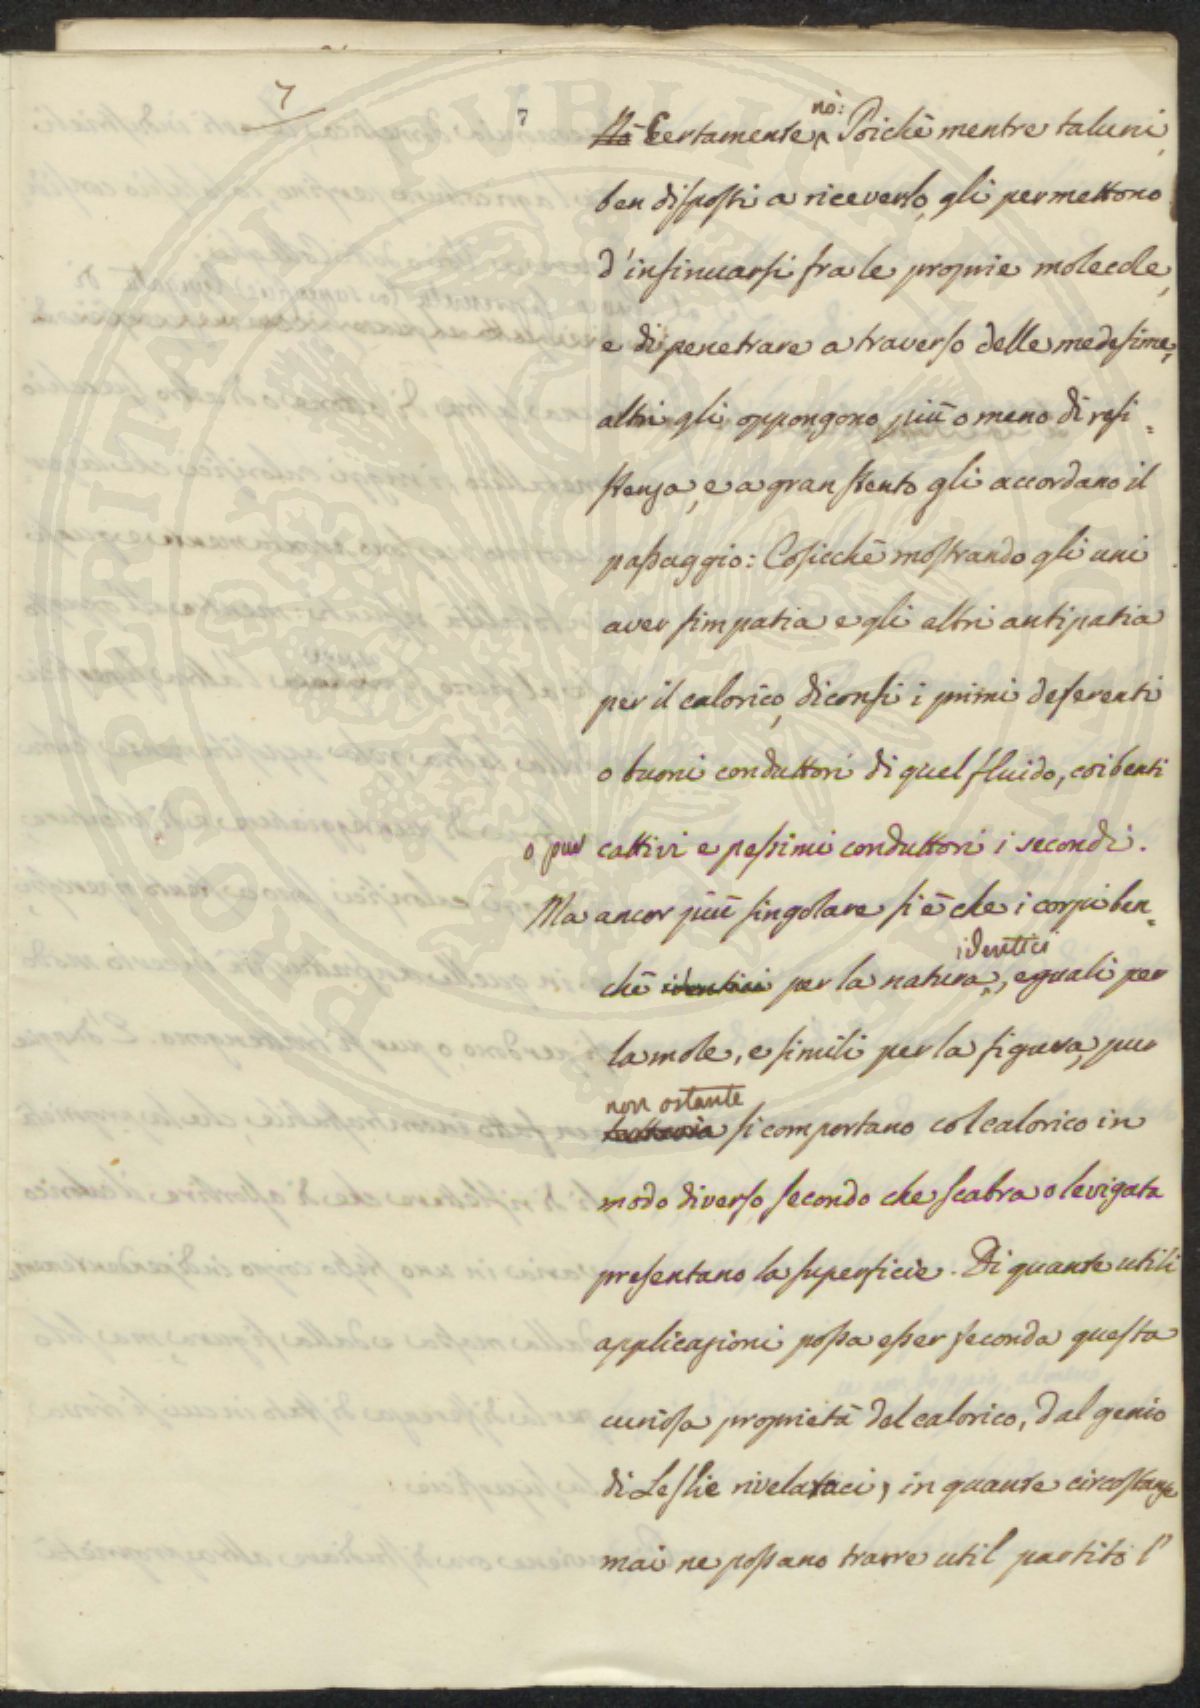 7
7
nò:
Nò Certamente, Poichè mentre taluni,
ben disposti a riceverlo, gli permettono
d'insinuarsi fra le proprie molecole,
e di penetrare a traverso delle medesime,
altri gli oppongono più o meno di resi=
stenza, e a gran stento gli accordano il
passaggio: Cosicchè mostrando gli uni
aver simpatia e gli altri antipatia
per il calorico, diconsi i primi deferenti
o buoni conduttori di quel fluido, coibenti
o pur cattivi e pessimi conduttori i secondi.
Ma ancor più singolare si è che i corpi ben=
identici
chè identici per la natura, eguali per
la mole, e simili per la figura, pur
non ostante
tuttavia si comportano col calorico in
modo diverso secondo che scabra o levigata
presentano la superficie. Di quante utili
applicazioni possa esser feconda questa
curiosa proprietà del calorico, dal genio
di Leslie rivelataci, in quante circostanze
mai ne possano trarre util partito l'
PERITAT PUBLIC